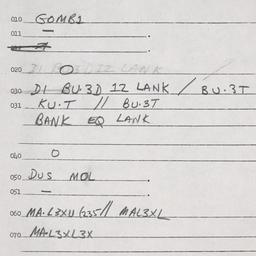 010 GOMB1
011 —
020 O
030 DI BU.3D 1Z LANK / BU.3T
031 KU.T // BU.3T
BANK EQ LANK
040 O
050 DUS MOL
051 —
060 MA.L3X11 G235// MAL3XL
070 MA.L3XL3X